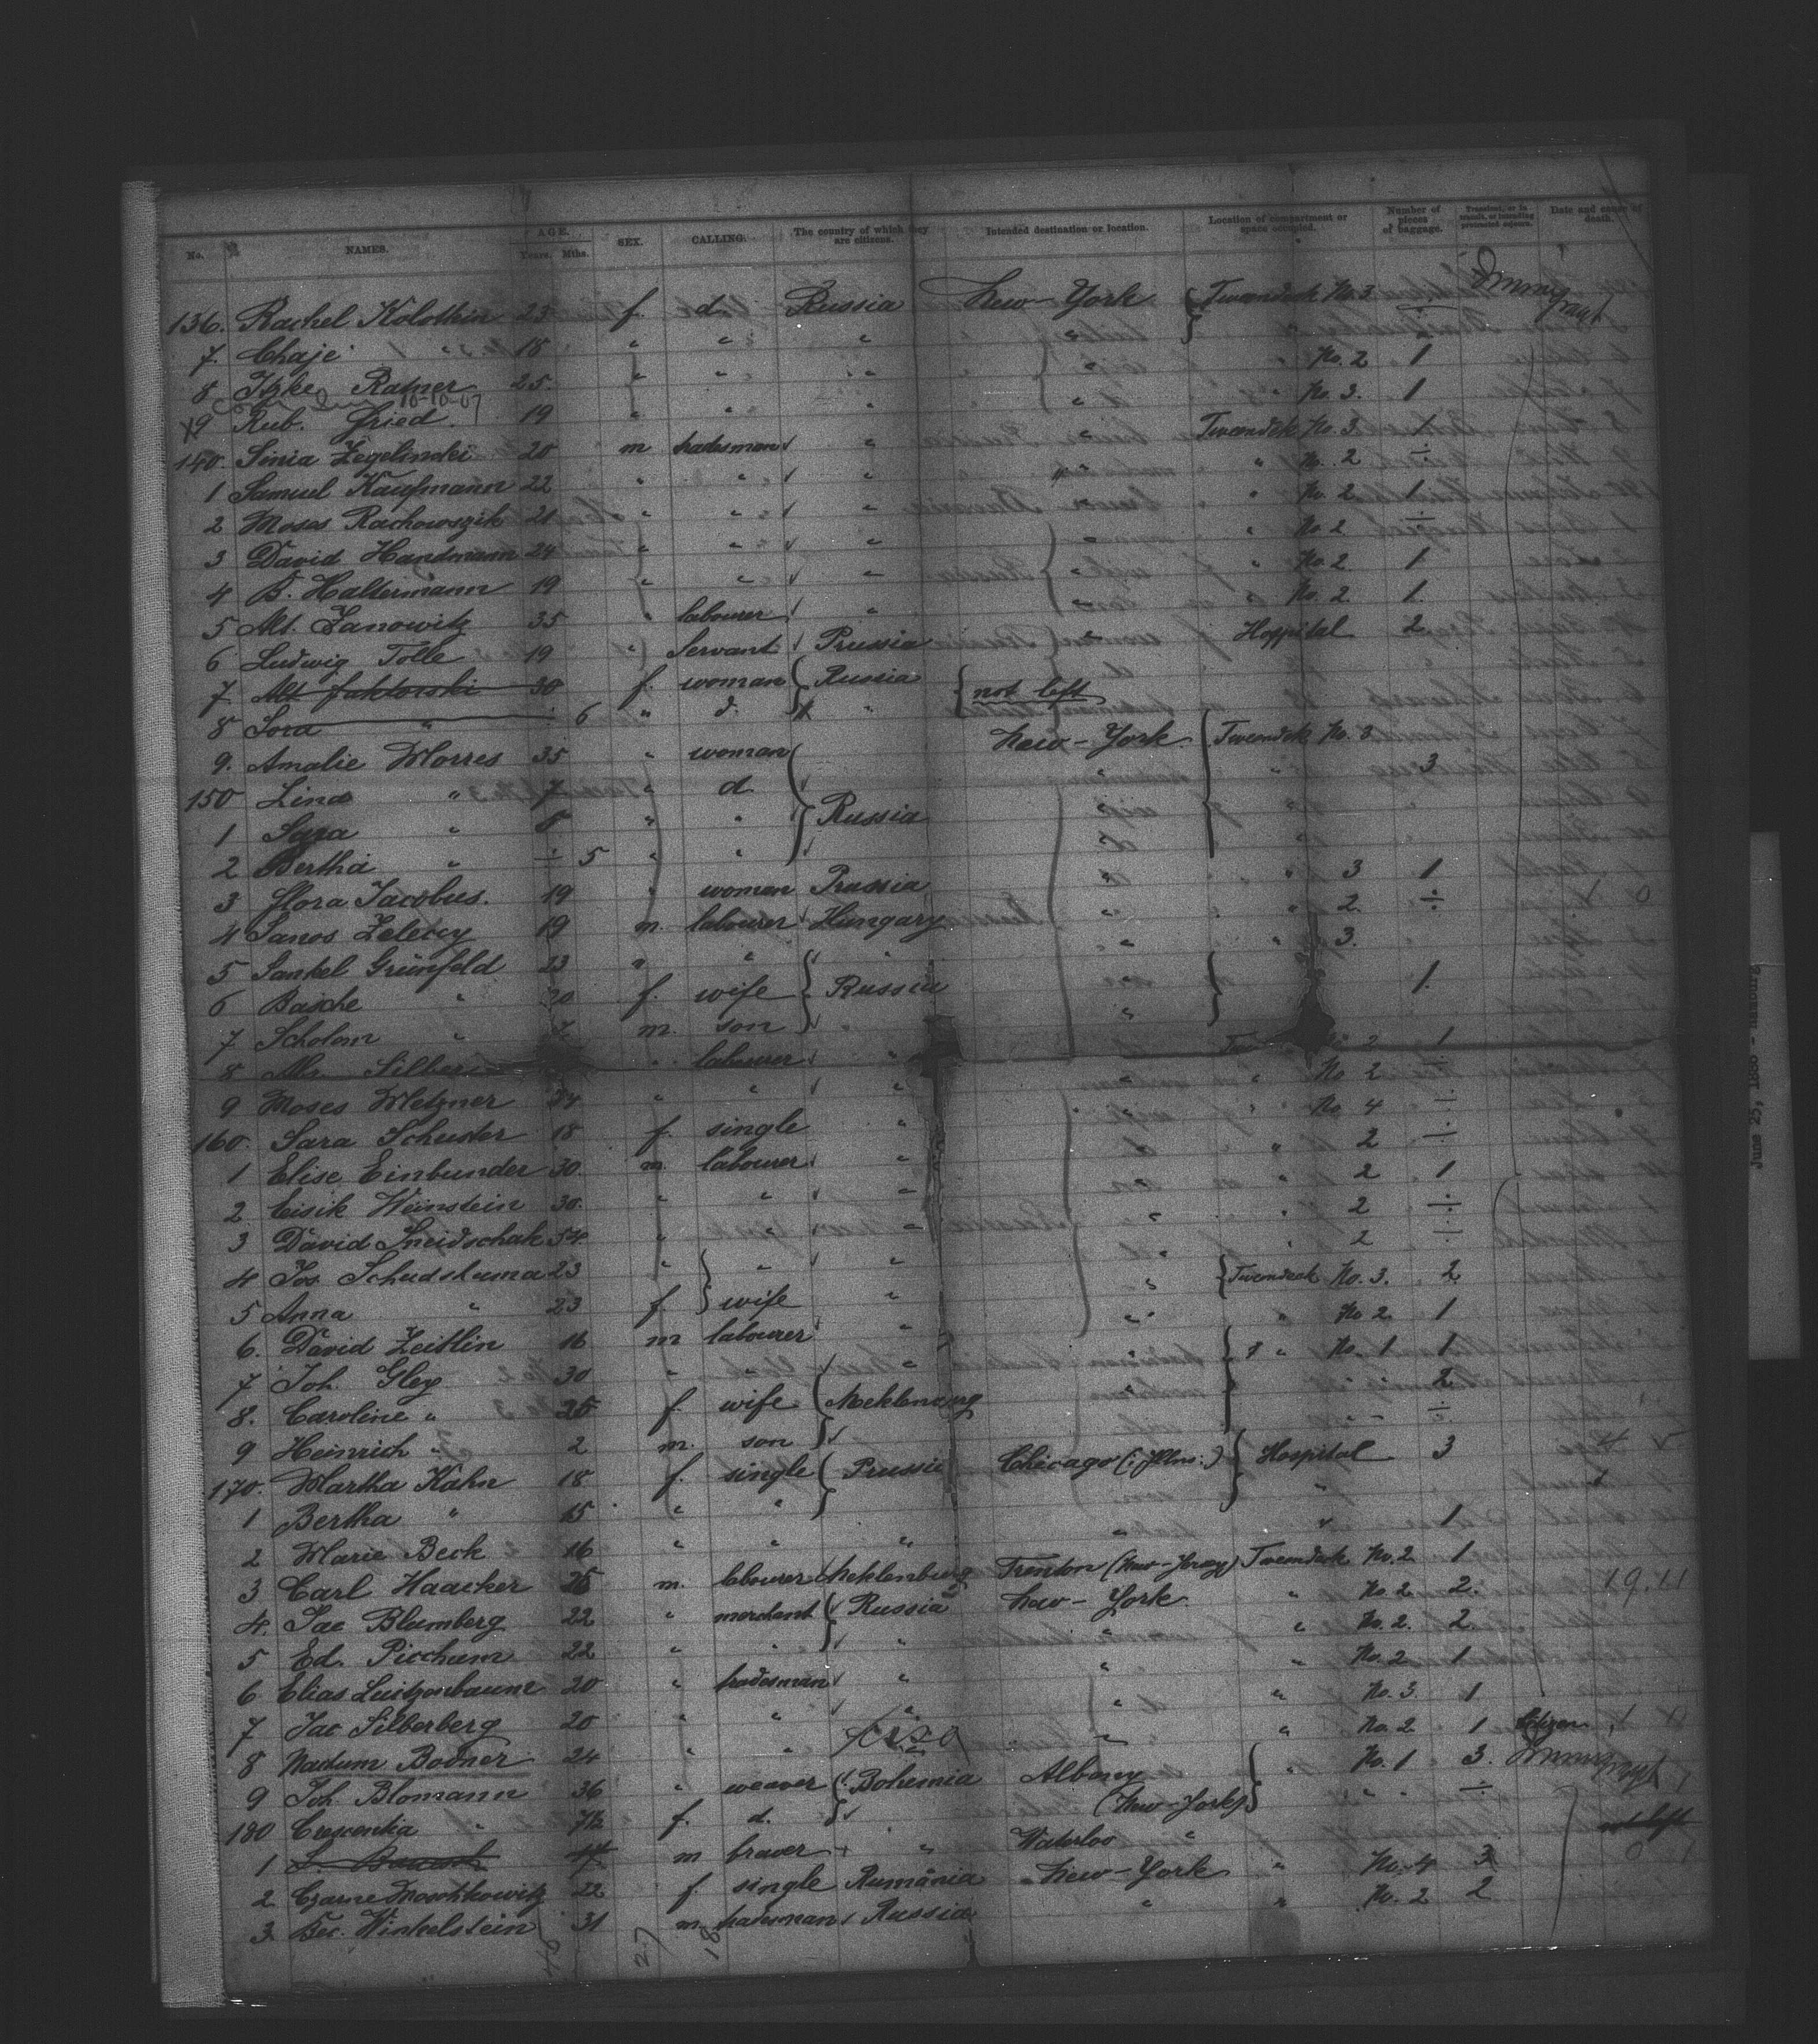 No. NAMES. AGE. Years. Mths. SEX. CALLING. The country of which they are citizens. Intended destination or location. Location of compartment or space occupied. Number of pieces of baggage. Transient, or in transit, or intending protracted sojourn. Date and cause of death.
136. Rachel Kolothin 23 f. d. Russia New-York Tweendeck No. 3 Immigrant
7. Chaje " 18 " " " "
8 Itzke Ratner 25. " " " " No. 2 1
10-10-07
9 Rub. Fried. 19 " " " " " No. 3. 1
140. Sinia Zegelinski 20 m tradesman " " Tweendek No. 3. 1
1 Samuel Kaufmann 22 " " " " " No. 2 ÷
2 Moses Rachowszik 21 " " " " " No. 2 1
3 David Handmann 24 " " " " " No. 2 ÷
4 B. Haltermann 19 " " " " " No. 2 1
5 Mt. Janowitz 35 " labourer " " " No. 2. 1.
6 Ludwig Tolle 19 " Servant Prussia " Hospital 2.
7. Mt Faktorski 30 f. woman Russia not left
8 Sora " ÷ 6 " d. "
9. Amalie Morres 35 " woman New-York Tweendek No. 3
150 Lina " 7 " d " " 3
1 Sara " " " Russia " "
2 Bertha " ÷ 5 " " "
3 Flora Jacobus. 19 " woman Prussia " " 3 1
4 Janos Zeleccy 19 m. labourer Hungary " " 2. ÷
5 Jankel Grünfeld 23 " " " " " 3.
6 Basche " 20 f. wife Russia " 1.
7 Scholom " m. son " "
8 Silber " labourer " 2 1
9 Moses Metzner 24 " " " " " No 2 ÷
160. Sara Schuster 18 f. single " " " No 4 ÷
1 Elise Einbunder 30. m. labourer " " " 2 ÷
2. Eisik Weinstein 30. " " " " " 2 1
3 David Sneidschak 54. " " " " " 2 ÷
4 Jos. Schudsluma 23 " " " " " 2 ÷
5 Anna " 23 f. wife " " Tweendeck No. 3. 2.
6. David Zeitlin 16 m labourer " " " No 2. 1
7 Joh. Gley 30 " " " " " No. 1 1
8. Caroline " 25 f. wife Meklenburg " " " 2
9 Heinrich " 2 m. son " " ÷
170. Martha Kahn 18 f. single Prussia Chicago (Illns.) Hospital 3
1 Bertha " 15 " " "
2 Marie Beck 16 " " " " " 1
3 Carl Haacker 25 m. labourer Meklenburg Trenton (New-Jersey) Tweendeck No. 2 1
4. Jac Blumberg 22 " merchant Russia New-York " No. 2 2.
5 Ed. Picchum 22 " " " " " No. 2. 2.
6 Elias Luitzenbaum 20 " tradesman " " " No. 2 1
7 Jac Silberberg 20 " " " " " No. 3. 1
8 Nadum Bodner 24 " " " " No. 2 1 Citizen
9 Joh. Blomann 36 " weaver Bohemia Albany " No. 1 3. Immigrant
180 Crescentia " 7½ f. d. (New-York) " " ÷
1 17 m braver " Waterloo " not left
2 Czarne Moschkowitz 22 f. single Rumänia New-York " No. 4 3
3. Bec. Winkelstein 31 m. tradesman Russia " " No. 2 2
27 18
June 25, 1886 - Hamburg